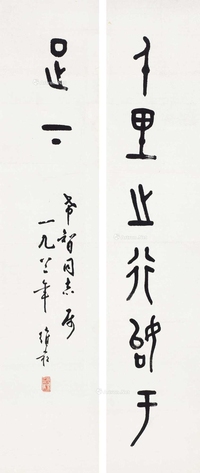 千里之行始于
足下
希智同志属
一九八年